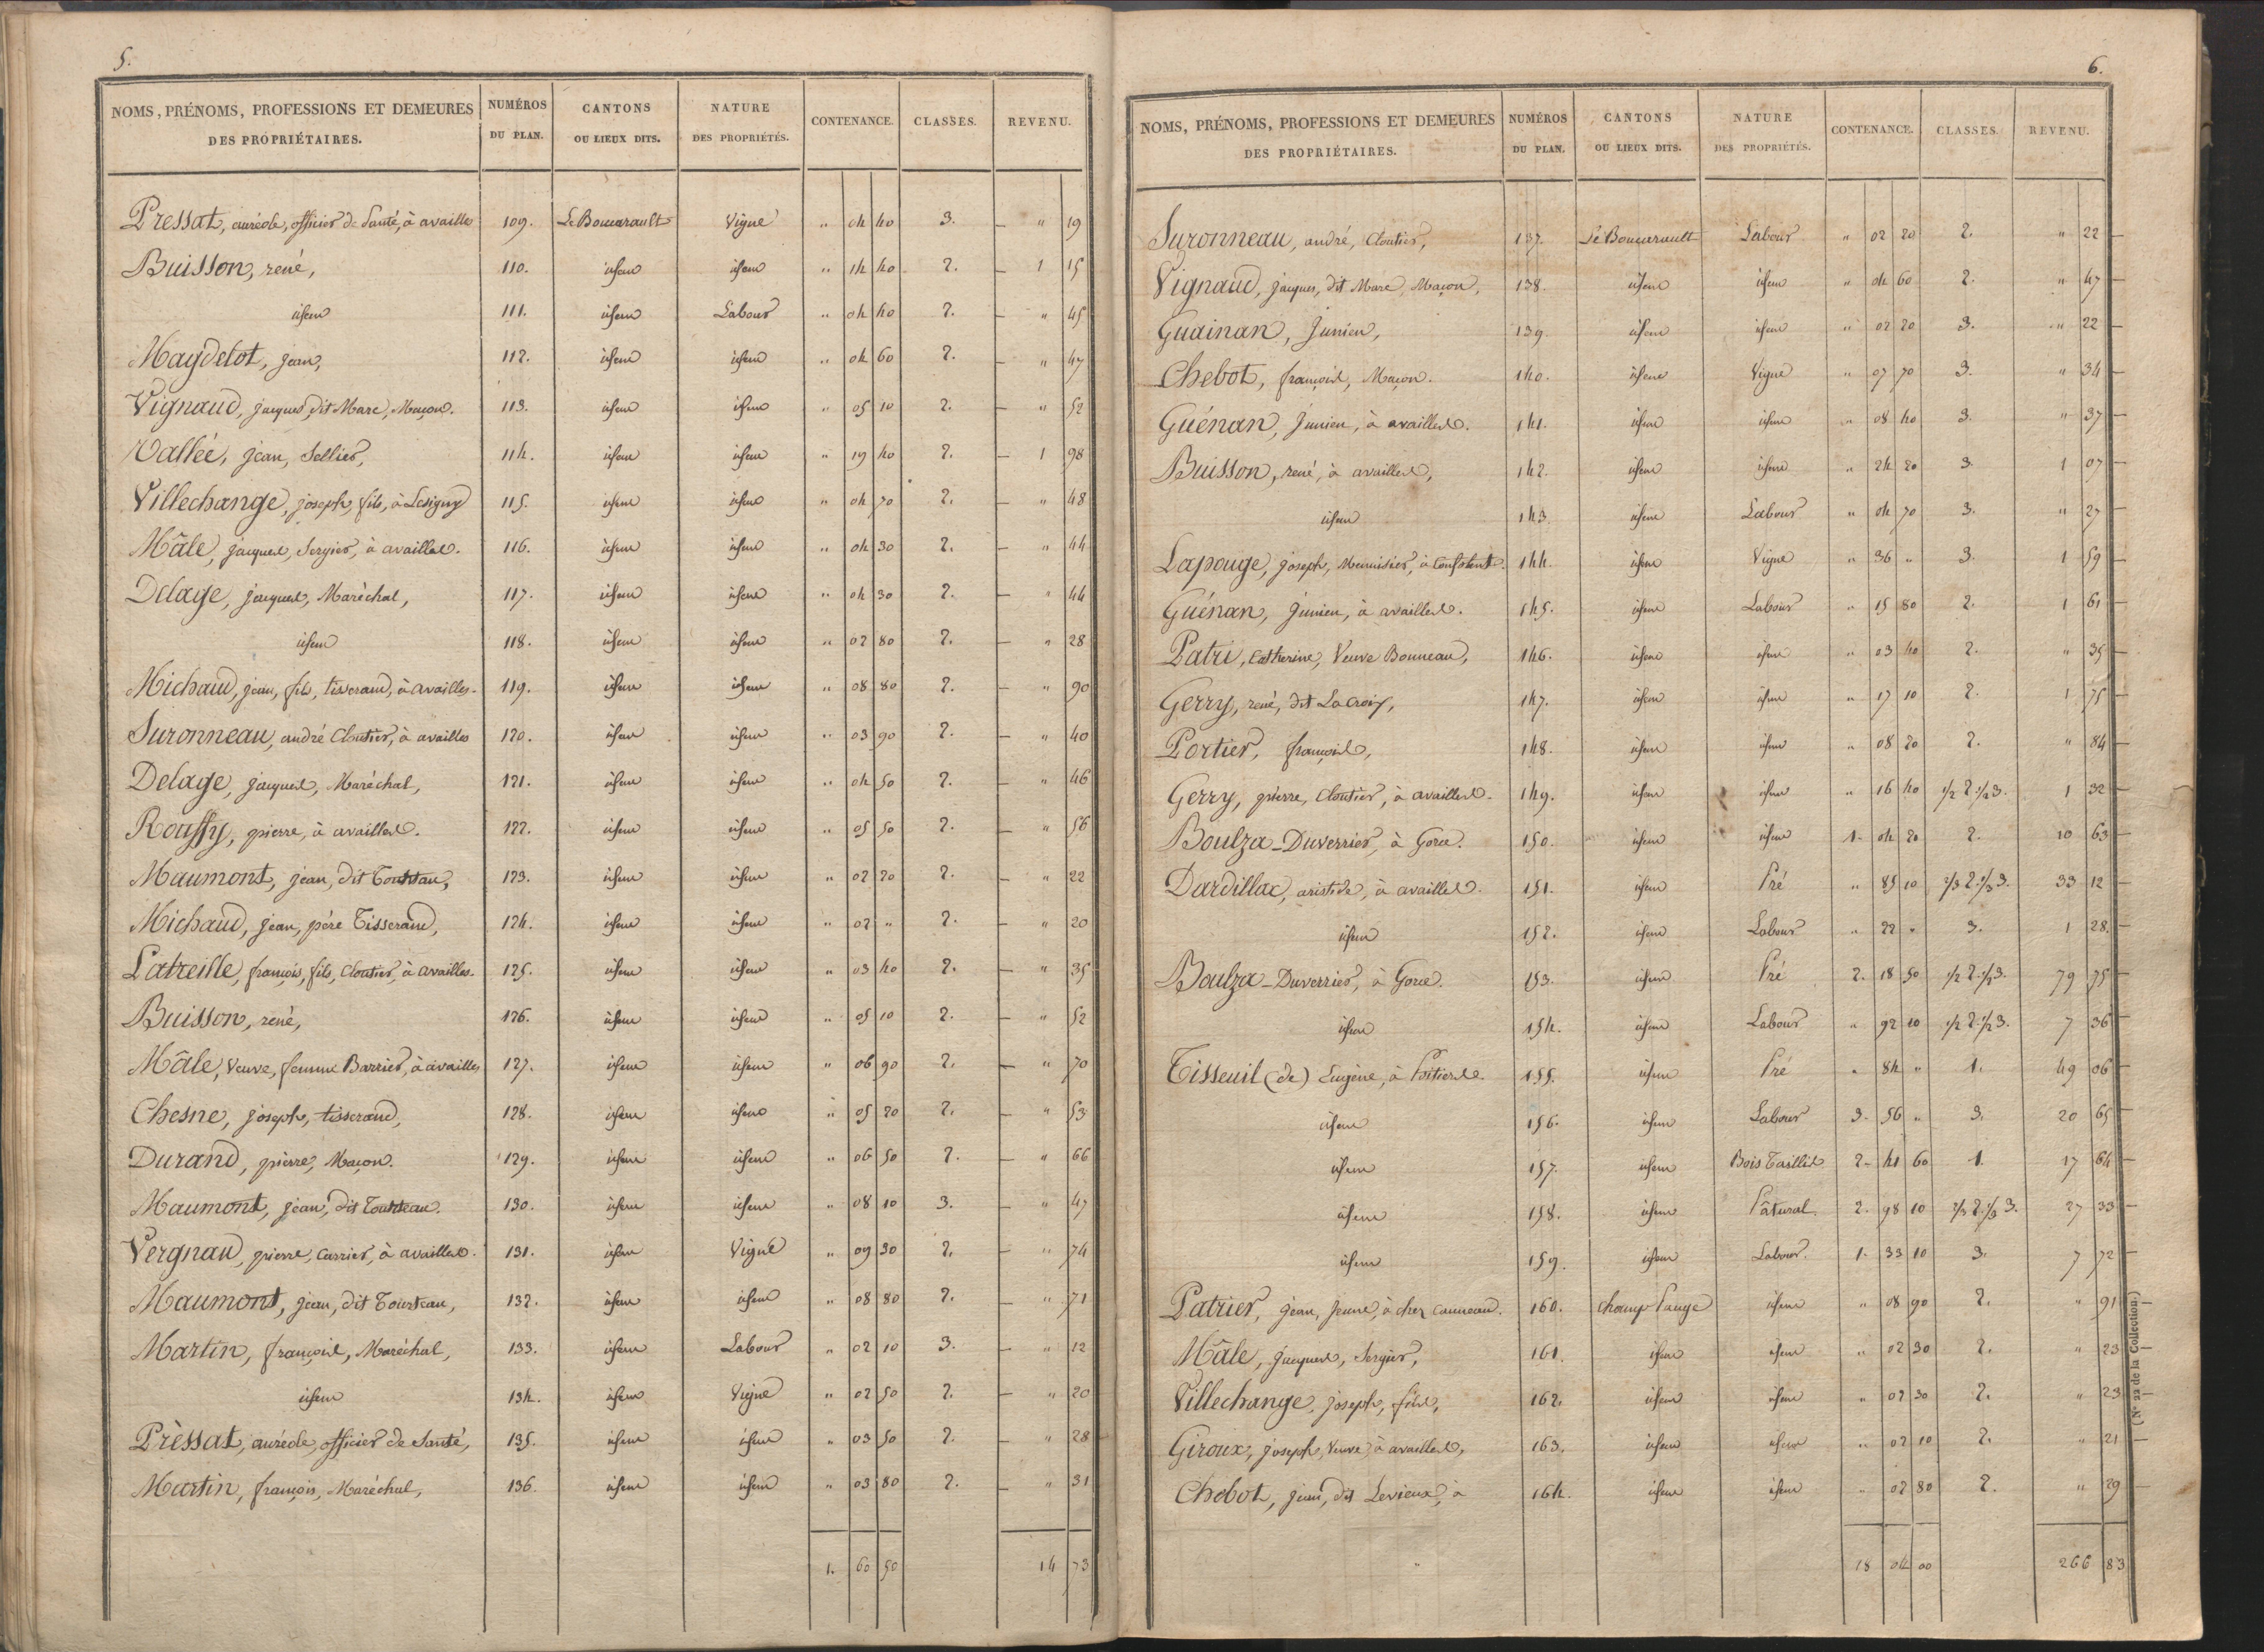 5.
NOMS, PRÉNOMS, PROFESSIONS ET DEMEURES DES PROPRIÉTAIRES. NUMÉROS DU PLAN. CANTONS OU LIEUX DITS. NATURE DES PROPRIÉTÉS. CONTENANCE. CLASSES. REVENU.
Pressat, auréole, officier de Santé, à availle 109. Le Boucarault Vigne " 04 40 3. — " 19
Buisson, rené, 110. idem idem " 14 40 2. — 1 15
idem 111. idem Labour " 04 40 2. — " 45
Maydelot, jean, 112. idem idem " 04 60 2. — " 47
Vignaud, jacques, dit Marc, Maçon. 113. idem idem " 05 10 2. — " 52
Vallée, jean, Sellier, 114. idem idem " 19 40 2. — 1 98
Villechange, joseph, fils, à Lesigny 115. idem idem " 04 70 2. — " 48
Mâle, jacques, Sergier, à availles. 116. idem idem " 04 30 2. — " 44
Delage, jacques, Maréchal, 117. idem idem " 04 30 2. — " 44
idem 118. idem idem " 02 80 2. — " 28
Michaud, jean, fils, tisserand, à availles. 119. idem idem " 08 80 2. — " 90
Suronneau, andré Cloutier, à availles 120. idem idem " 03 90 2. — " 40
Delage, jacques, Maréchal, 121. idem idem " 04 50 2. — " 46
Rouffy, pierre, à availles. 122. idem idem " 05 50 2. — " 56
Maumont, jean, dit Tourteau, 123. idem idem " 02 20 2. — " 22
Michaud, jean, père Tisserand, 124. idem idem " 02 " 2. — " 20
Latreille, françois, fils, Cloutier, à availles. 125. idem idem " 03 40 2. — " 35
Buisson, rené, 126. idem idem " 05 10 2. — " 52
Mâle, Veuve, femme Barrier, à availles 127. idem idem " 06 90 2. — " 70
Chesne, joseph, tisserand, 128. idem idem " 05 20 2. — " 53
Durand, pierre, Maçon. 129. idem idem " 06 50 2. — " 66
Maumont, jean, dit Tourteau. 130. idem idem " 08 10 3. — " 47
Vergnau, pierre, Carrier, à availles. 131. idem Vigne " 09 30 2. — " 74
Maumont, jean, dit Tourteau, 132. idem idem " 08 80 2. — " 71
Martin, françois, Maréchal, 133. idem Labour " 02 10 3. — " 12
idem 134. idem Vigne " 02 50 2. — " 20
Prèssat, auréole, officier de Santé, 135. idem idem " 03 50 2. — " 28
Martin, françois, Maréchal, 136. idem idem " 03 80 2. — " 31
1. 60 50 14 73
6.
NOMS, PRÉNOMS, PROFESSIONS ET DEMEURES DES PROPRIÉTAIRES. NUMÉROS DU PLAN. CANTONS OU LIEUX DITS. NATURE DES PROPRIÉTÉS. CONTENANCE. CLASSES. REVENU.
Suronneau, andré, Cloutier, 137. Le Boucarault Labour " 02 20 2. " 22 —
Vignaud, jacques, dit Marc, Maçon, 138. idem idem " 04 60 2. " 47 —
Guainan, Junien, 139. idem idem " 02 20 3. " 22 —
Chebot, françois, Maçon. 140. idem Vigne " 07 70 3. " 34 —
Guénan, Junien, à availles. 141. idem idem " 08 40 3. " 37 —
Buisson, rené, à availles, 142. idem idem " 24 20 3. 1 07 —
idem 143. idem Labour " 04 70 3. " 27 —
Lapouge, joseph, Menuisier, à Confolent. 144. idem Vigne " 36 " 3. 1 59 —
Guénan, Junien, à availles. 145. idem Labour " 15 80 2. 1 61 —
Patri, Catherine, Veuve Bonneau, 146. idem idem " 03 40 2. " 35 —
Gerry, rené, dit LaCroix, 147. idem idem " 17 10 2. 1 75 —
Portier, françois, 148. idem idem " 08 20 2. " 84 —
Gerry, pierre, Cloutier, à availles. 149. idem idem " 16 40 1/2 2. 1/2 3. 1 32 —
Boulza-Duverrier, à Gorce. 150. idem idem 1. 04 20 2. 10 63 —
Dardillac, aristide, à availles. 151. idem Pré " 85 10 2/3 2. 1/3 3. 33 12 —
idem 152. idem Labour " 22 " 3. 1 28. —
Boulza-Duverrier, à Gorce. 153. idem Pré 2. 18 50 1/2 2. 1/2 3. 79 75 —
idem 154. idem Labour " 92 10 1/2 2. 1/2 3. 7 36 —
Tisseuil (de) Eugène, à Poitiers. 155. idem Pré " 84 " 1. 49 06 —
idem 156. idem Labour 3. 56 " 3. 20 65 —
idem 157. idem Bois Taillis 2. 41 60 1. 17 64 —
idem 158. idem Pâtural 2. 98 10 2/3 2. 1/3 3. 27 33 —
idem 159. idem Labour. 1. 33 10 3. 7 72 —
Patrier, jean, jeune, à chez 160. champ idem " 08 90 2. " 91 —
Mâle, jacques, Sergier, 161. idem idem " 02 30 2. " 23 —
Villechange, joseph, fils, 162. idem idem " 02 30 2. " 23 —
Giroux, joseph, Veuve, à availles, 163. idem idem " 02 10 2. " 21 —
Chebot, jean, dit Levieux, à 164. idem idem " 02 80 2. " 29 —
18 04 00 266 83
(N° 22 de la Collection.)